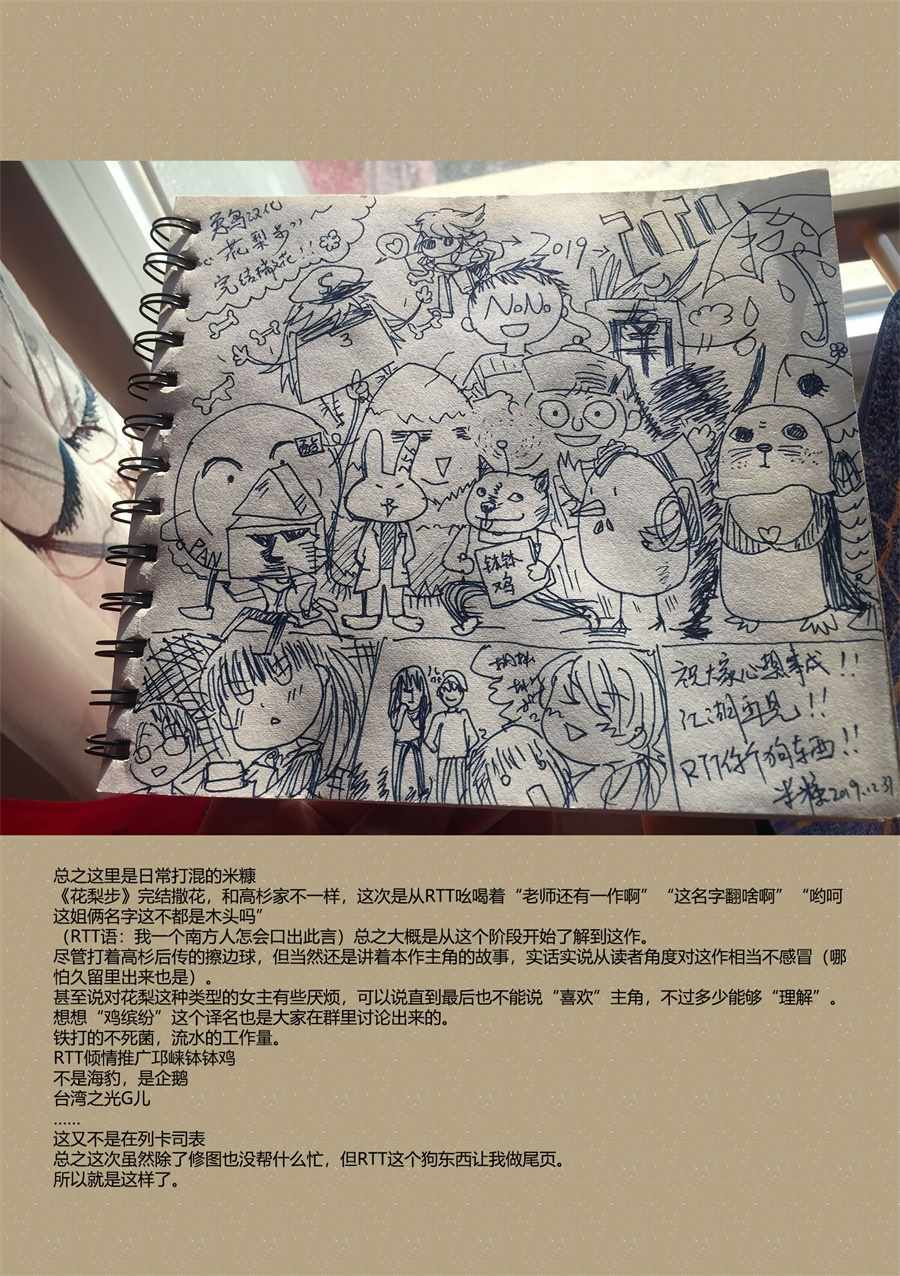 花梨步
完结撒花!!
2019
2020
NoNo
3
PAN
钵钵
鸡
祝大家心想事成!!
江湖再见!!
RTT你个狗东西!!
米糠2019.12.31
总之这里是日常打混的米糠
《花梨步》完结撒花，和高杉家不一样，这次是从RTT吆喝着“老师还有一作啊”“这名字翻啥啊”“哟呵
这姐俩名字这不都是木头吗”
（RTT语：我一个南方人怎会口出此言）总之大概是从这个阶段开始了解到这作。
尽管打着高杉后传的擦边球，但当然还是讲着本作主角的故事，实话实说从读者角度对这作相当不感冒（哪
怕久留里出来也是）。
甚至说对花梨这种类型的女主有些厌烦，可以说直到最后也不能说“喜欢”主角，不过多少能够“理解”。
想想“鸡缤纷”这个译名也是大家在群里讨论出来的。
铁打的不死菌，流水的工作量。
RTT倾情推广邛崃钵钵鸡
不是海豹，是企鹅
台湾之光G儿
……
这又不是在列卡司表
总之这次虽然除了修图也没帮什么忙，但RTT这个狗东西让我做尾页。
所以就是这样了。